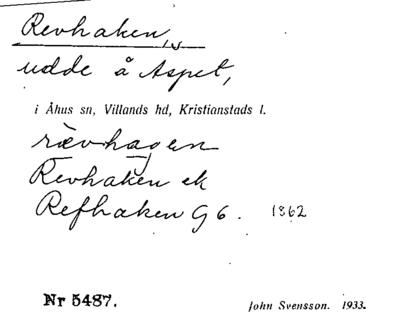 Revhaken,
udde å Aspet,
i Åhus sn, Villands hd, Kristianstads l.
rævhagen
Revhaken ek
Refhaken G 6. 1862
Nr 5487.
John Svensson. 1933.